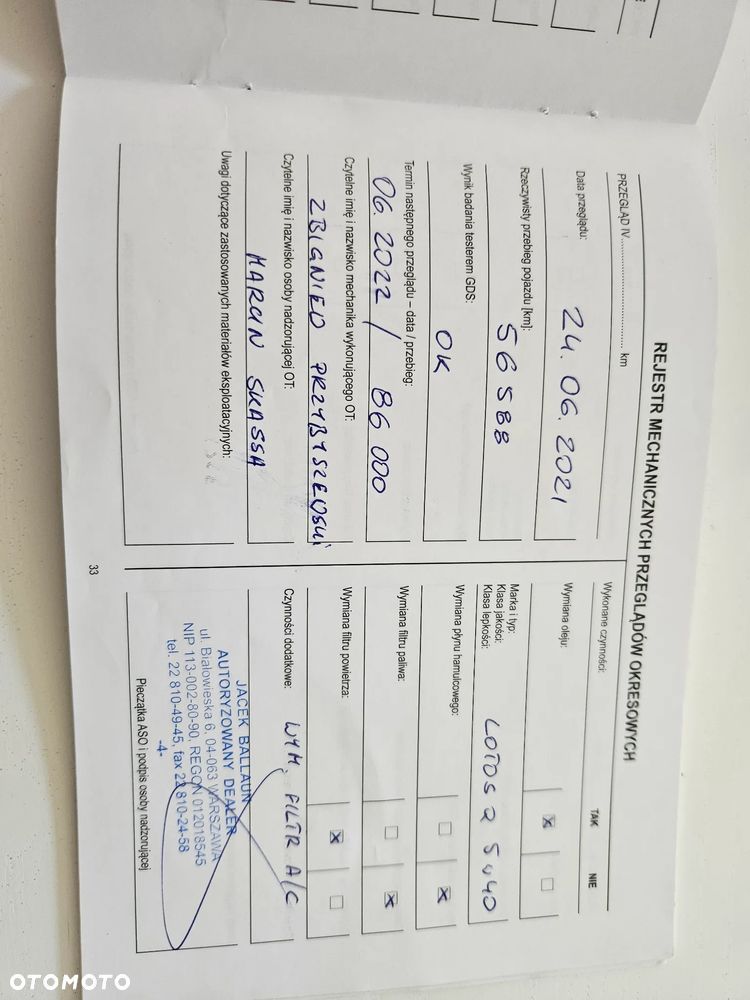 REJESTR MECHANICZNYCH PRZEGLĄDÓW OKRESOWYCH
PRZEGLĄD IV.................................... km
Data przeglądu:
24. 06. 2021
Rzeczywisty przebieg pojazdu [km]:
56588
Wynik badania testerem GDS:
OK
Termin następnego przeglądu – data / przebieg:
06. 2022 / 86 000
Czytelne imię i nazwisko mechanika wykonującego OT:
ZBIGNIEW PRZYBYSZEWSKI
Czytelne imię i nazwisko osoby nadzorującej OT:
MARCIN SKASSA
Uwagi dotyczące zastosowanych materiałów eksploatacyjnych:
Wykonane czynności: TAK NIE
Wymiana oleju: x
Marka i typ:
Klasa jakości:
Klasa lepkości:
LOTOS 2 5W40
Wymiana płynu hamulcowego: x
Wymiana filtru paliwa: x
Wymiana filtru powietrza: x
Czynności dodatkowe: WYM. FILTR A/C
JACEK BALLAUN
AUTORYZOWANY DEALER
ul. Białowieska 6, 04-063 WARSZAWA
NIP 113-002-80-90, REGON 012018545
tel. 22 810-49-45, fax 22 810-24-58
-4-
Pieczątka ASO i podpis osoby nadzorującej
33
OTOMOTO